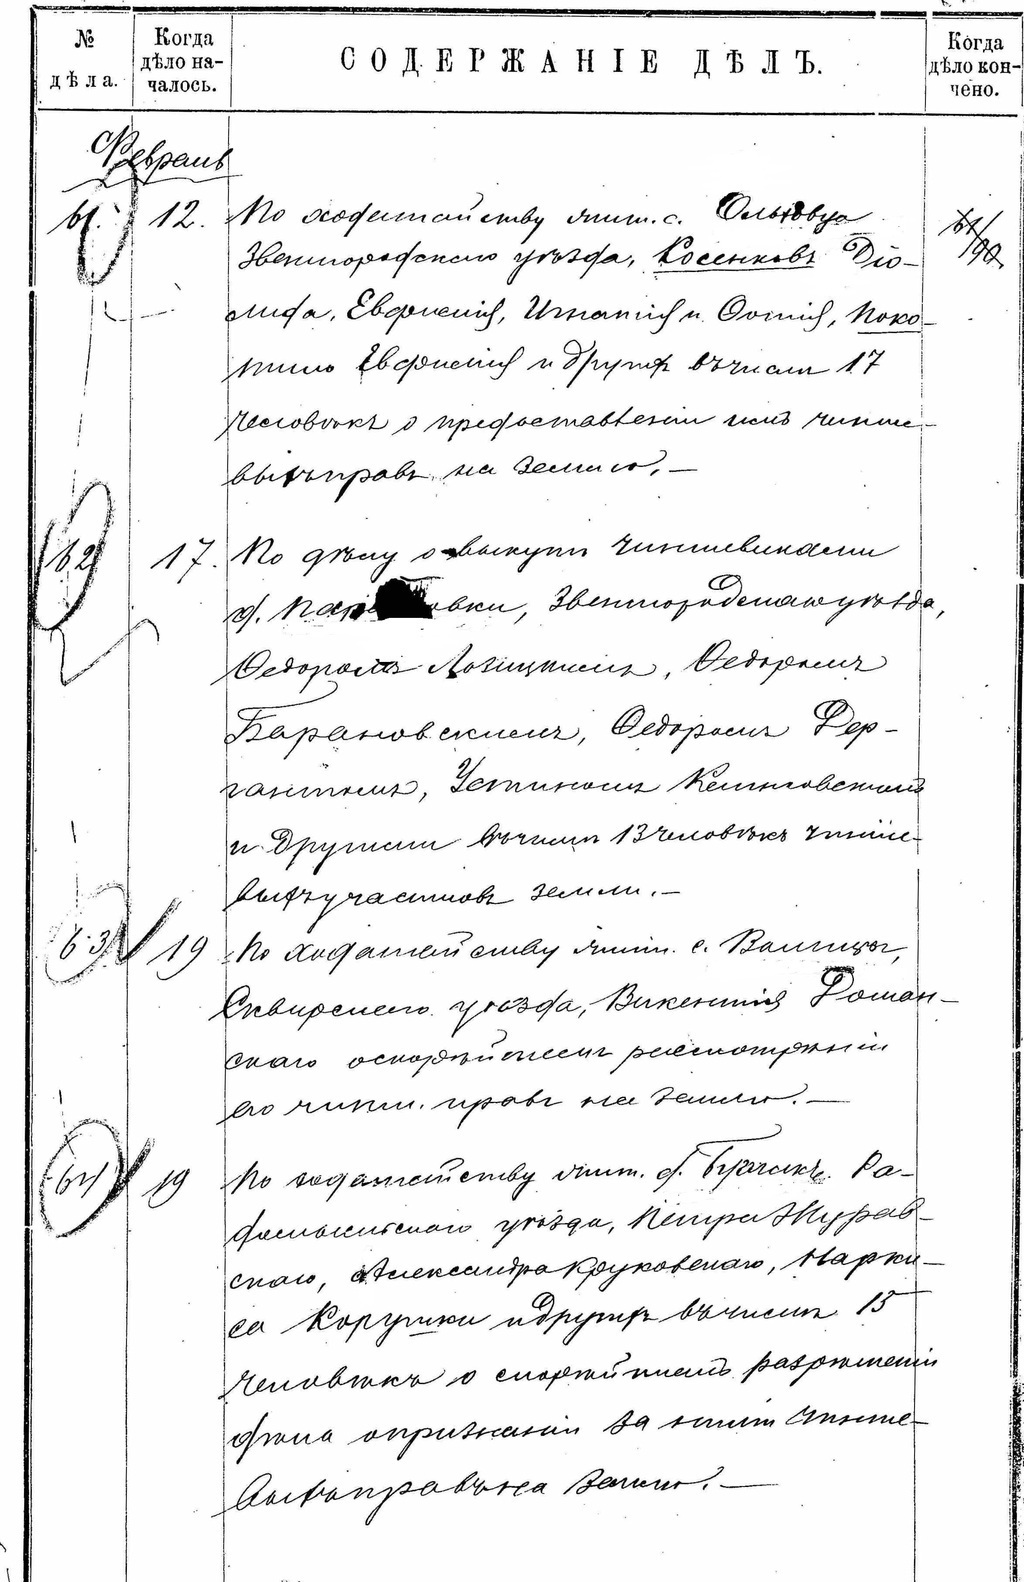 № дѣла.
Когда дѣло началось.
СОДЕРЖАНІЕ ДѢЛЪ.
Когда дѣло кончено.
Февраль
61. 12. По ходатайству жит. с. Ольховца 61/90
Звенигородскаго уѣзда, Косенковъ Діо-
мида, Евфимія, Игнатія и Фотія, Поко-
тило Евфимія и другихъ въ числѣ 17
человѣкъ о предоставленіи имъ чинше-
выхъ правъ на землю. —
62 17. По дѣлу о выкупѣ чиншевиками
д. овки, Звенигородскаго уѣзда,
Федоромъ Лозицкимъ, Федоромъ
Барановскимъ, Федоромъ Дер-
гантомъ, Устиномъ
и другими въ числѣ 13 человѣкъ чинше-
выхъ участковъ земли. —
63 19 По ходатайству жит. с. Волицы,
Сквирскаго уѣзда, Викентія Доман-
скаго о скорѣйшемъ разсмотрѣніи
его чинш. правъ на землю. —
64 19 По ходатайству жит. д. Ра-
домысльскаго уѣзда, Петра Журав-
скаго, Александра Круковскаго, Марки-
са и другихъ въ числѣ 15
человѣкъ о скорѣйшемъ разрѣшеніи
дѣла о признаніи за ними чинше-
выхъ правъ на землю. —